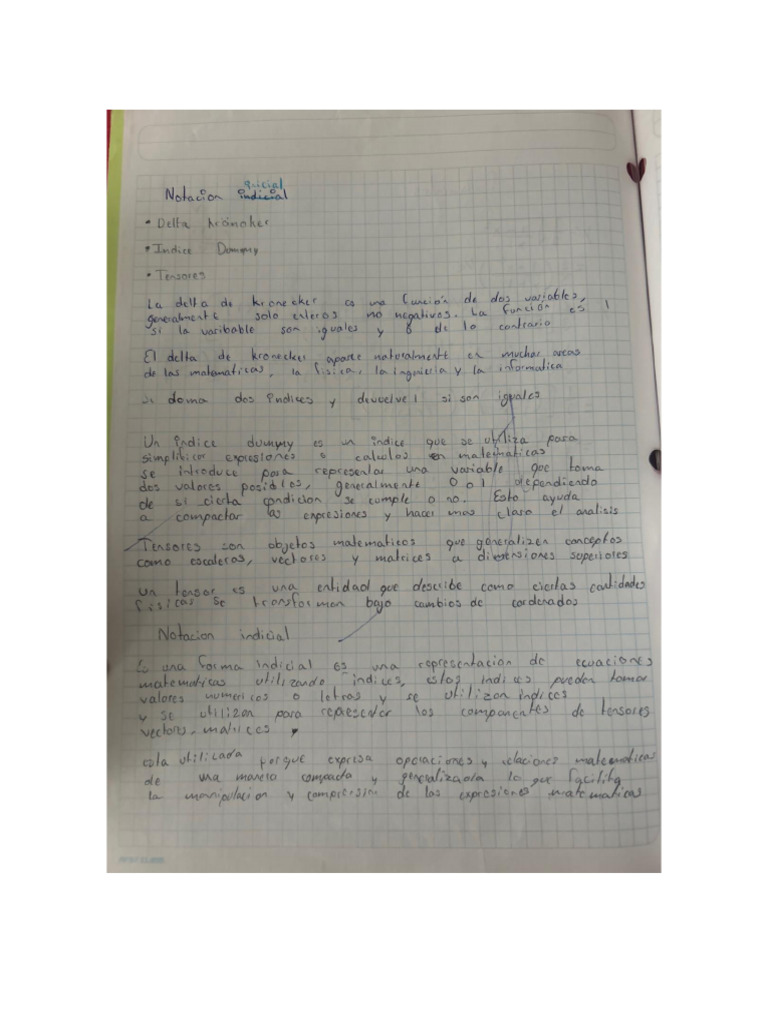 Notacion indicial
• Delta kröneker
• Indice Dummy
• Tensores
La delta de kronecker es una función de dos variables,
generalmente solo enteros no negativos. La función es 1
si la varibable son iguales y 0 de lo contrario
El delta de kronecker aparece naturalmente en muchas areas
de las matematicas, la fisica, la ingeneria y la informatica
doma dos índices y devuelve 1 si son iguales
Un índice dummy es un indice que se utiliza para
simplificar expresiones o calculos en matematicas
se introduce para representar una variable que toma
dos valores posiblos, generalmente 0 o 1 dependiendo
de si cierta condicion se cumple o no. Esto ayuda
a compactar las expresiones y hacer mas claro el analisis
Tensores son objetos matematicos que generalizen conceptos
como escaleros, vectores y matrices a dimensiones superiores
un tensor es una entidad que describe como ciertas cantidades
fisicas se transforman bajo cambios de cordenados
Notacion indicial
Es una forma indicial es una representacion de ecuaciones
matematicas utilizando indices, estos indices pueden tomar
valores numericos o letras y se utilizan indices
y se utilizan para representar los componentes de tensores
vectores, matrices
esta utilizada porque expresa operaciones y relaciones matematicas
de una manera compacta y generalizada lo que facilita
la manipulacion y comprension de las expresiones matematicas